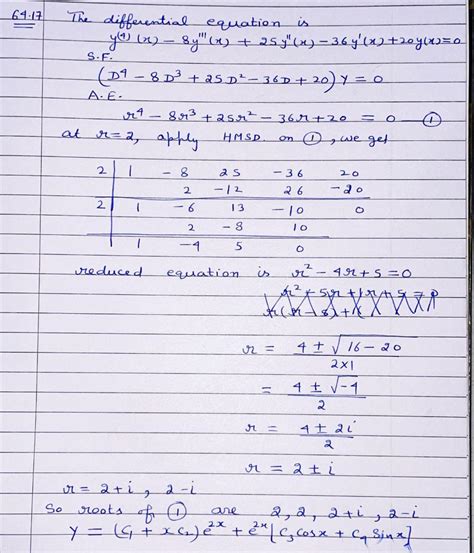 64.17 The differential equation is
y⁽⁴⁾(x) - 8y'''(x) + 25y''(x) - 36y'(x) + 20y(x) = 0
S.F.
(D⁴ - 8D³ + 25D² - 36D + 20) y = 0
A.E.
r⁴ - 8r³ + 25r² - 36r + 20 = 0 — ①
at r = 2, apply HMSD. on ①, we get
2 | 1 -8 25 -36 20
2 -12 26 -20
2 | 1 -6 13 -10 0
2 -8 10
1 -4 5 0
reduced equation is r² - 4r + 5 = 0
r = 4 ± √16 - 20 / 2×1
= 4 ± √-4 / 2
r = 4 ± 2i / 2
r = 2 ± i
r = 2 + i, 2 - i
So roots of ① are 2, 2, 2 + i, 2 - i
y = (C₁ + xC₂)e²ˣ + e²ˣ[C₃cosx + C₄ Sinx]